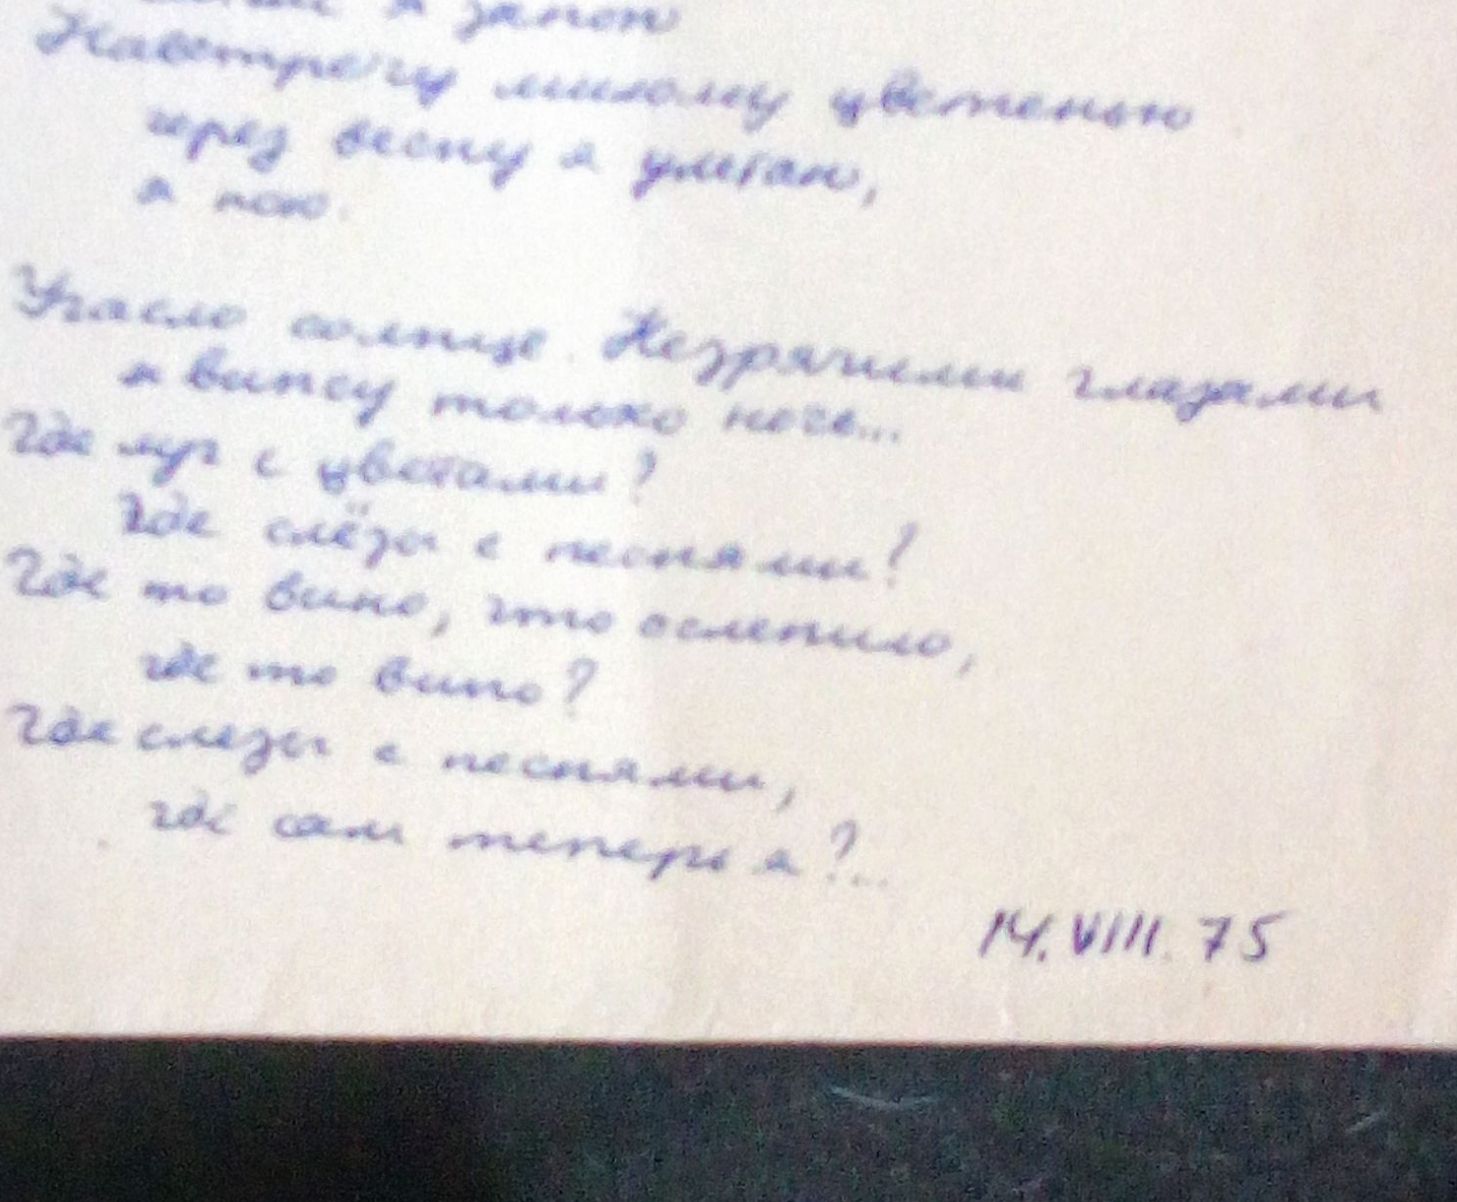 я запою
Навстречу милому цветенью
через весну я улетаю,
я пою.
Угасло солнце. Незрячими глазами
я вижу только ночь...
Где луг с цветами?
Где слёзы с песнями?
Где то вино, что ослепило,
где то вино?
Где слезы с песнями,
где сам теперь я?...
14.VIII.75